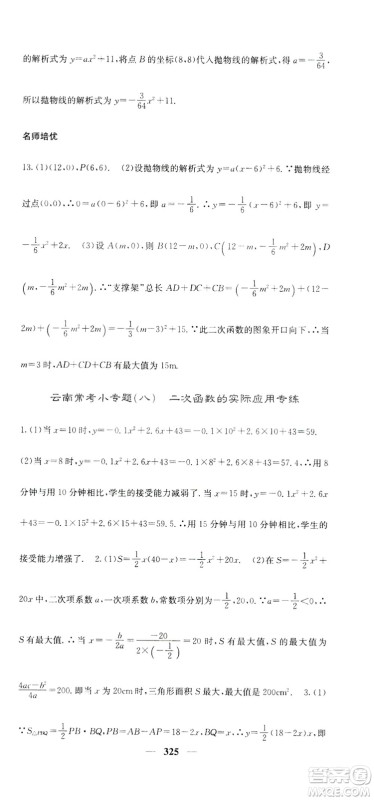 的解析式为 y=ax²+11,将点 B 的坐标(8,8)代入抛物线的解析式,得 a=-3/64.
所以抛物线的解析式为 y=-3/64x²+11.
名师培优
13.(1)(12,0),P(6,6). (2)设抛物线的解析式为 y=a(x-6)²+6,∵抛物线经
过点(0,0),∴0=a(0-6)²+6,即 a=-1/6.∴抛物线的解析式为 y=-1/6(x-6)²+6,即 y=
-1/6x²+2x. (3)设 A(m,0),则 B(12-m,0),C(12-m,-1/6m²+2m),D
(m,-1/6m²+2m).∴“支撑架”总长 AD+DC+CB=(-1/6m²+2m)+(12-
2m)+(-1/6m²+2m)=-1/3m²+2m+12.∵此二次函数的图象开口向下,∴当
m=3 时,AD+CD+CB 有最大值为 15m.
云南常考小专题(八) 二次函数的实际应用专练
1.(1)当 x=10 时,y=-0.1x²+2.6x+43=-0.1×10²+2.6×10+43=59.
(2)当 x=8 时,y=-0.1x²+2.6x+43=-0.1×8²+2.6×8+43=57.4<59.∴用 8
分钟与用 10 分钟相比,学生的接受能力减弱了. 当 x=15 时,y=-0.1x²+2.6x
+43=-0.1×15²+2.6×15+43=59.5>59.∴用 15 分钟与用 10 分钟相比,学生的
接受能力增强了. 2.(1)S=1/2x(40-x)=-1/2x²+20x. (2)在 S=-1/2x²+
20x 中,二次项系数 a=-1/2,一次项系数 b=20,常数项 c=0,∵a=-1/2<0,∴
S 有最大值.∴当 x=-b/2a=-20/(2×(-1/2))=20 时,S 有最大值,S 有最大值为
(4ac-b²)/4a=200. 即当 x 为 20cm 时,三角形面积 S 最大,最大面积是 200cm². 3.(1)
∵S△PBQ=1/2PB·BQ,PB=AB-AP=18-2x,BQ=x,∴y=1/2(18-2x)x,即 y=
325
答案圈